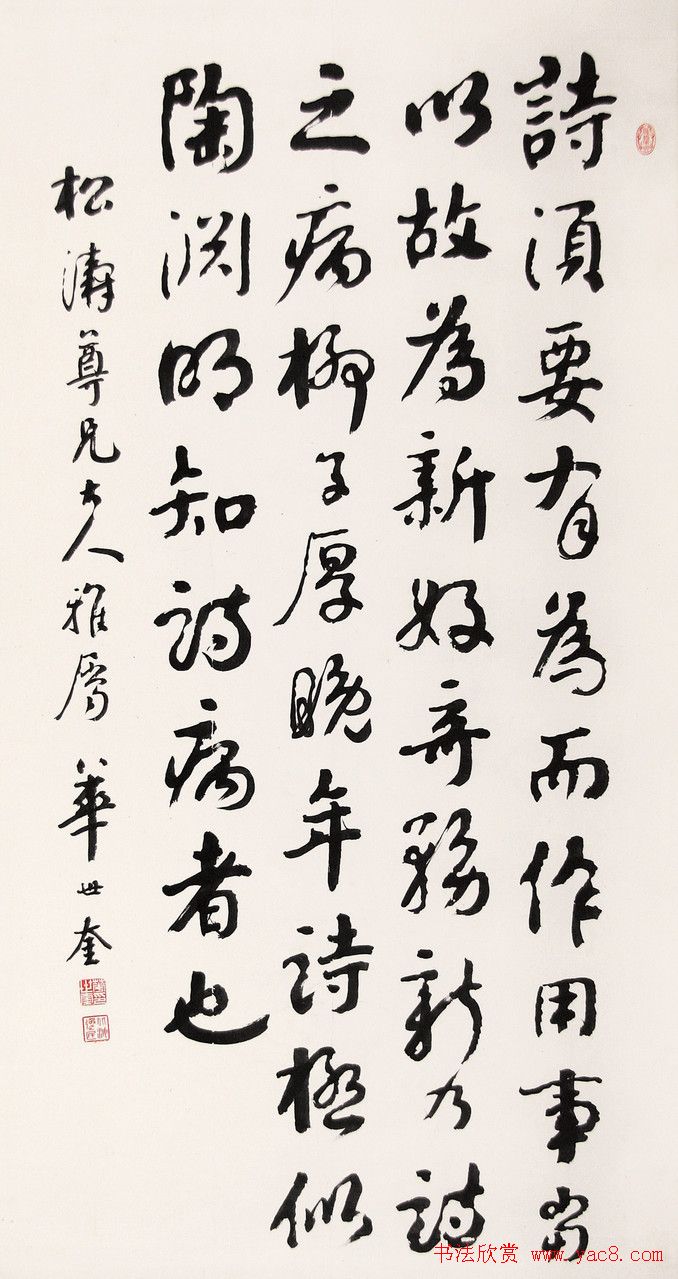 詩須要有為而作用事當
以故為新好奇務新乃詩
之病柳子厚晚年詩極似
陶渊明知詩病者也
松濤尊兄大人雅屬 華世奎
书法欣赏 www.yac8.com